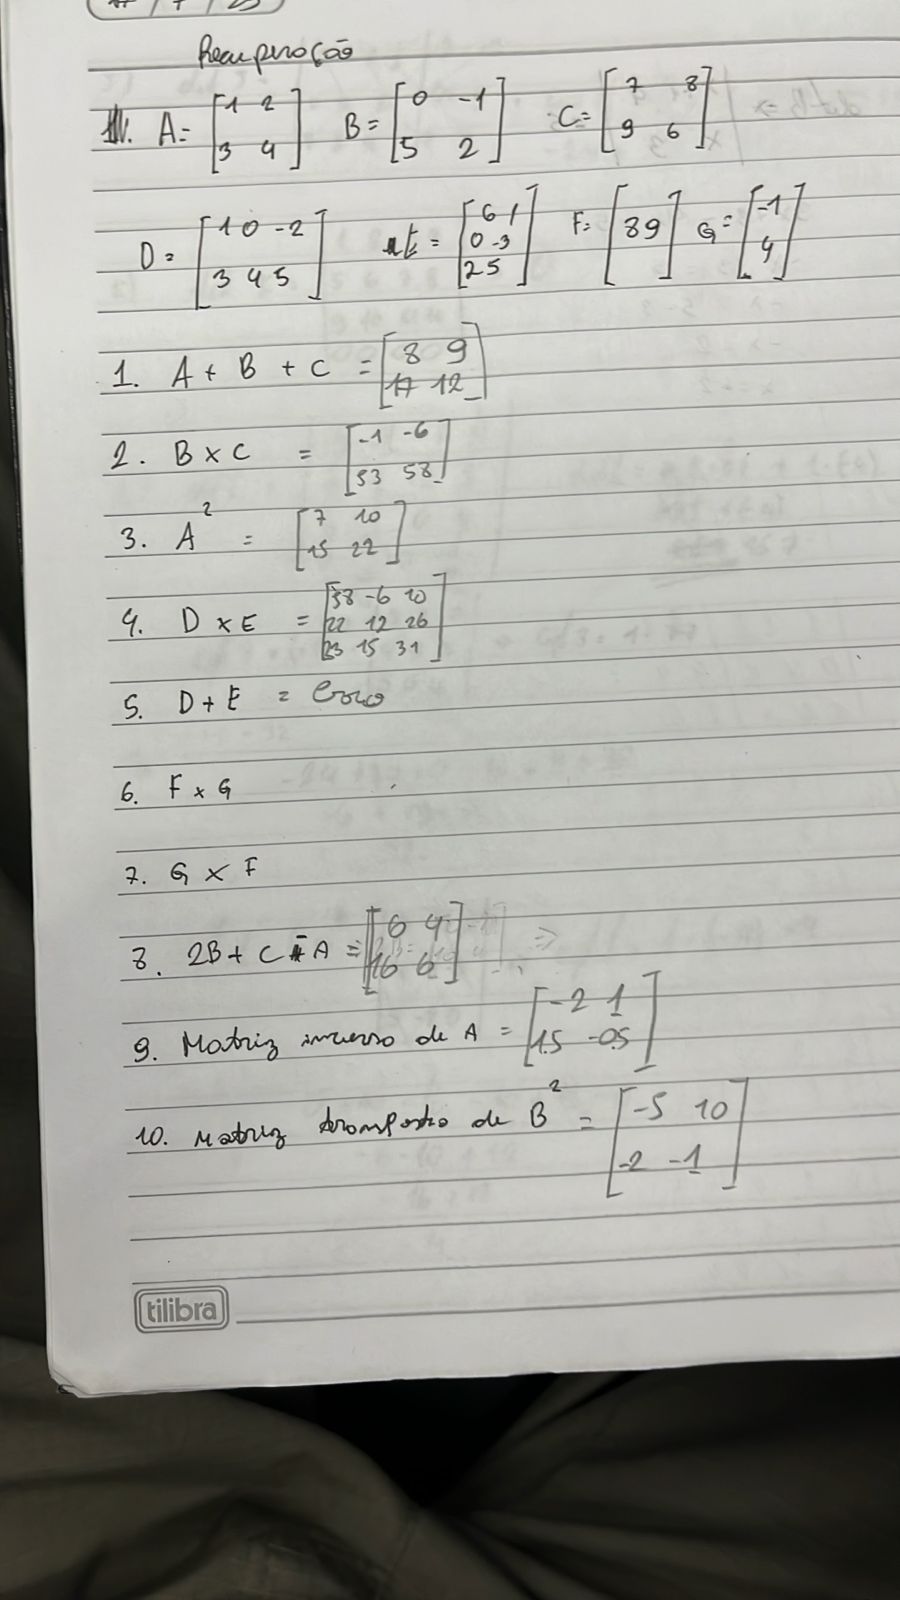 Recuperação
A= [1 2 / 3 4] B= [0 -1 / 5 2] C= [7 8 / 9 6]
D= [1 0 -2 / 3 4 5] E = [6 1 / 0 -3 / 2 5] F= [8 9] G= [-1 / 4]
1. A + B + C = [8 9 / 17 12]
2. B x C = [-1 -6 / 53 58]
3. A² = [7 10 / 15 22]
4. D x E = [38 -6 20 / 22 12 26 / 23 15 31]
5. D + E = Erro
6. F x G
7. G x F
8. 2B + C - A = [6 4 / 16 6]
9. Matriz inversa de A = [-2 1 / 1.5 -0.5]
10. Matriz transposta de B² = [-5 10 / -2 -1]
tilibra